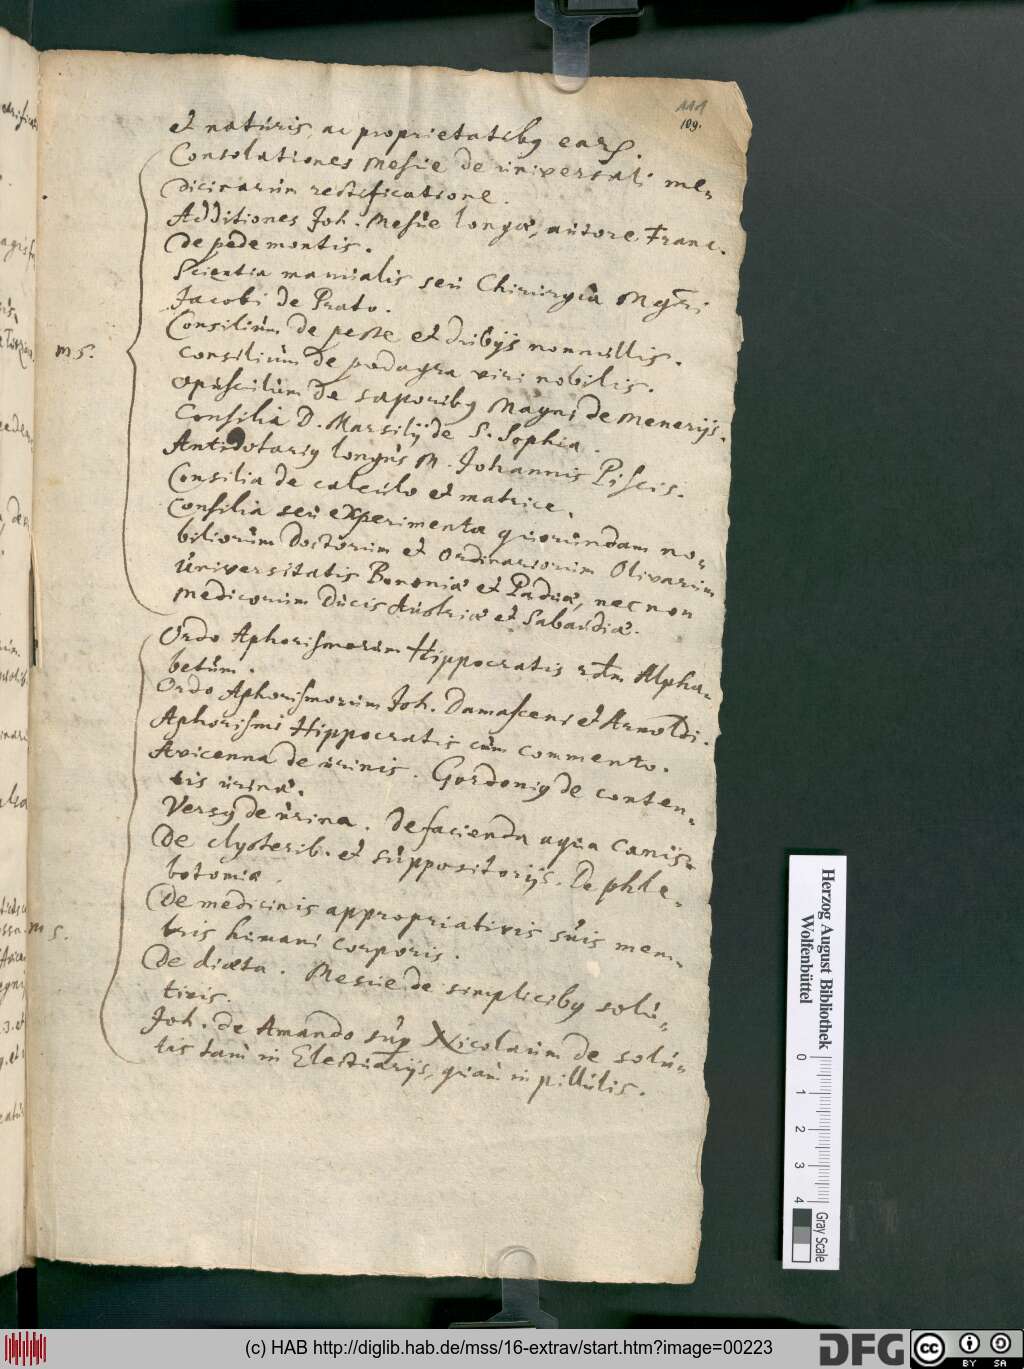 111
109.
et naturis, ac proprietatibꝫ earꝭ.
Consolationes Mesue de universali me-
dicinarum rectificatione.
Additiones Joh. Mesue longæ, autore Franc.
de pedemontis.
Scientia manualis seu Chirurgia Mgr̄i
Jacobi de Prato.
Consilium de peste et dubijs nonnullis.
m s.
Consilium de podagra viri nobilis.
Opusculum de saporibꝫ Magni de Menerijs.
Consilia D. Marsilij de S. Sophia.
Antidotariꝫ longus M. Johannis Piscis.
Consilia de calculo et matrice.
Consilia seu experimenta quorundam no-
biliorum Doctorum et Ordinariorum Olivarum
Universitatis Bononiæ et Paduæ, nec non
Medicorum Ducis Austriæ et Sabaudiæ.
Ordo Aphorismorum Hippocratis Alpha-
betum.
Ordo Aphorismorum Joh. Damasceni et Arnoldi.
Aphorismi Hippocratis cum commento.
Avicenna de urinis. Gordoniꝫ de conten-
tis urinæ.
Versꝫ de urina. De facienda aqua Canis-
De clysterib. et suppositorijs. De phle-
botomia.
De medicinis appropriativis suis mem-
m s.
bris humani corporis.
De diæta. Mesue de simplicibꝫ solu-
tivis.
Joh. de Amando sup Nicolaum de solu-
tis tam in Electuarijs, quam in pillulis.
Herzog August Bibliothek
Wolfenbüttel
0 1 2 3 4
Gray Scale
(c) HAB http://diglib.hab.de/mss/16-extrav/start.htm?image=00223
DFG
cc
BY SA